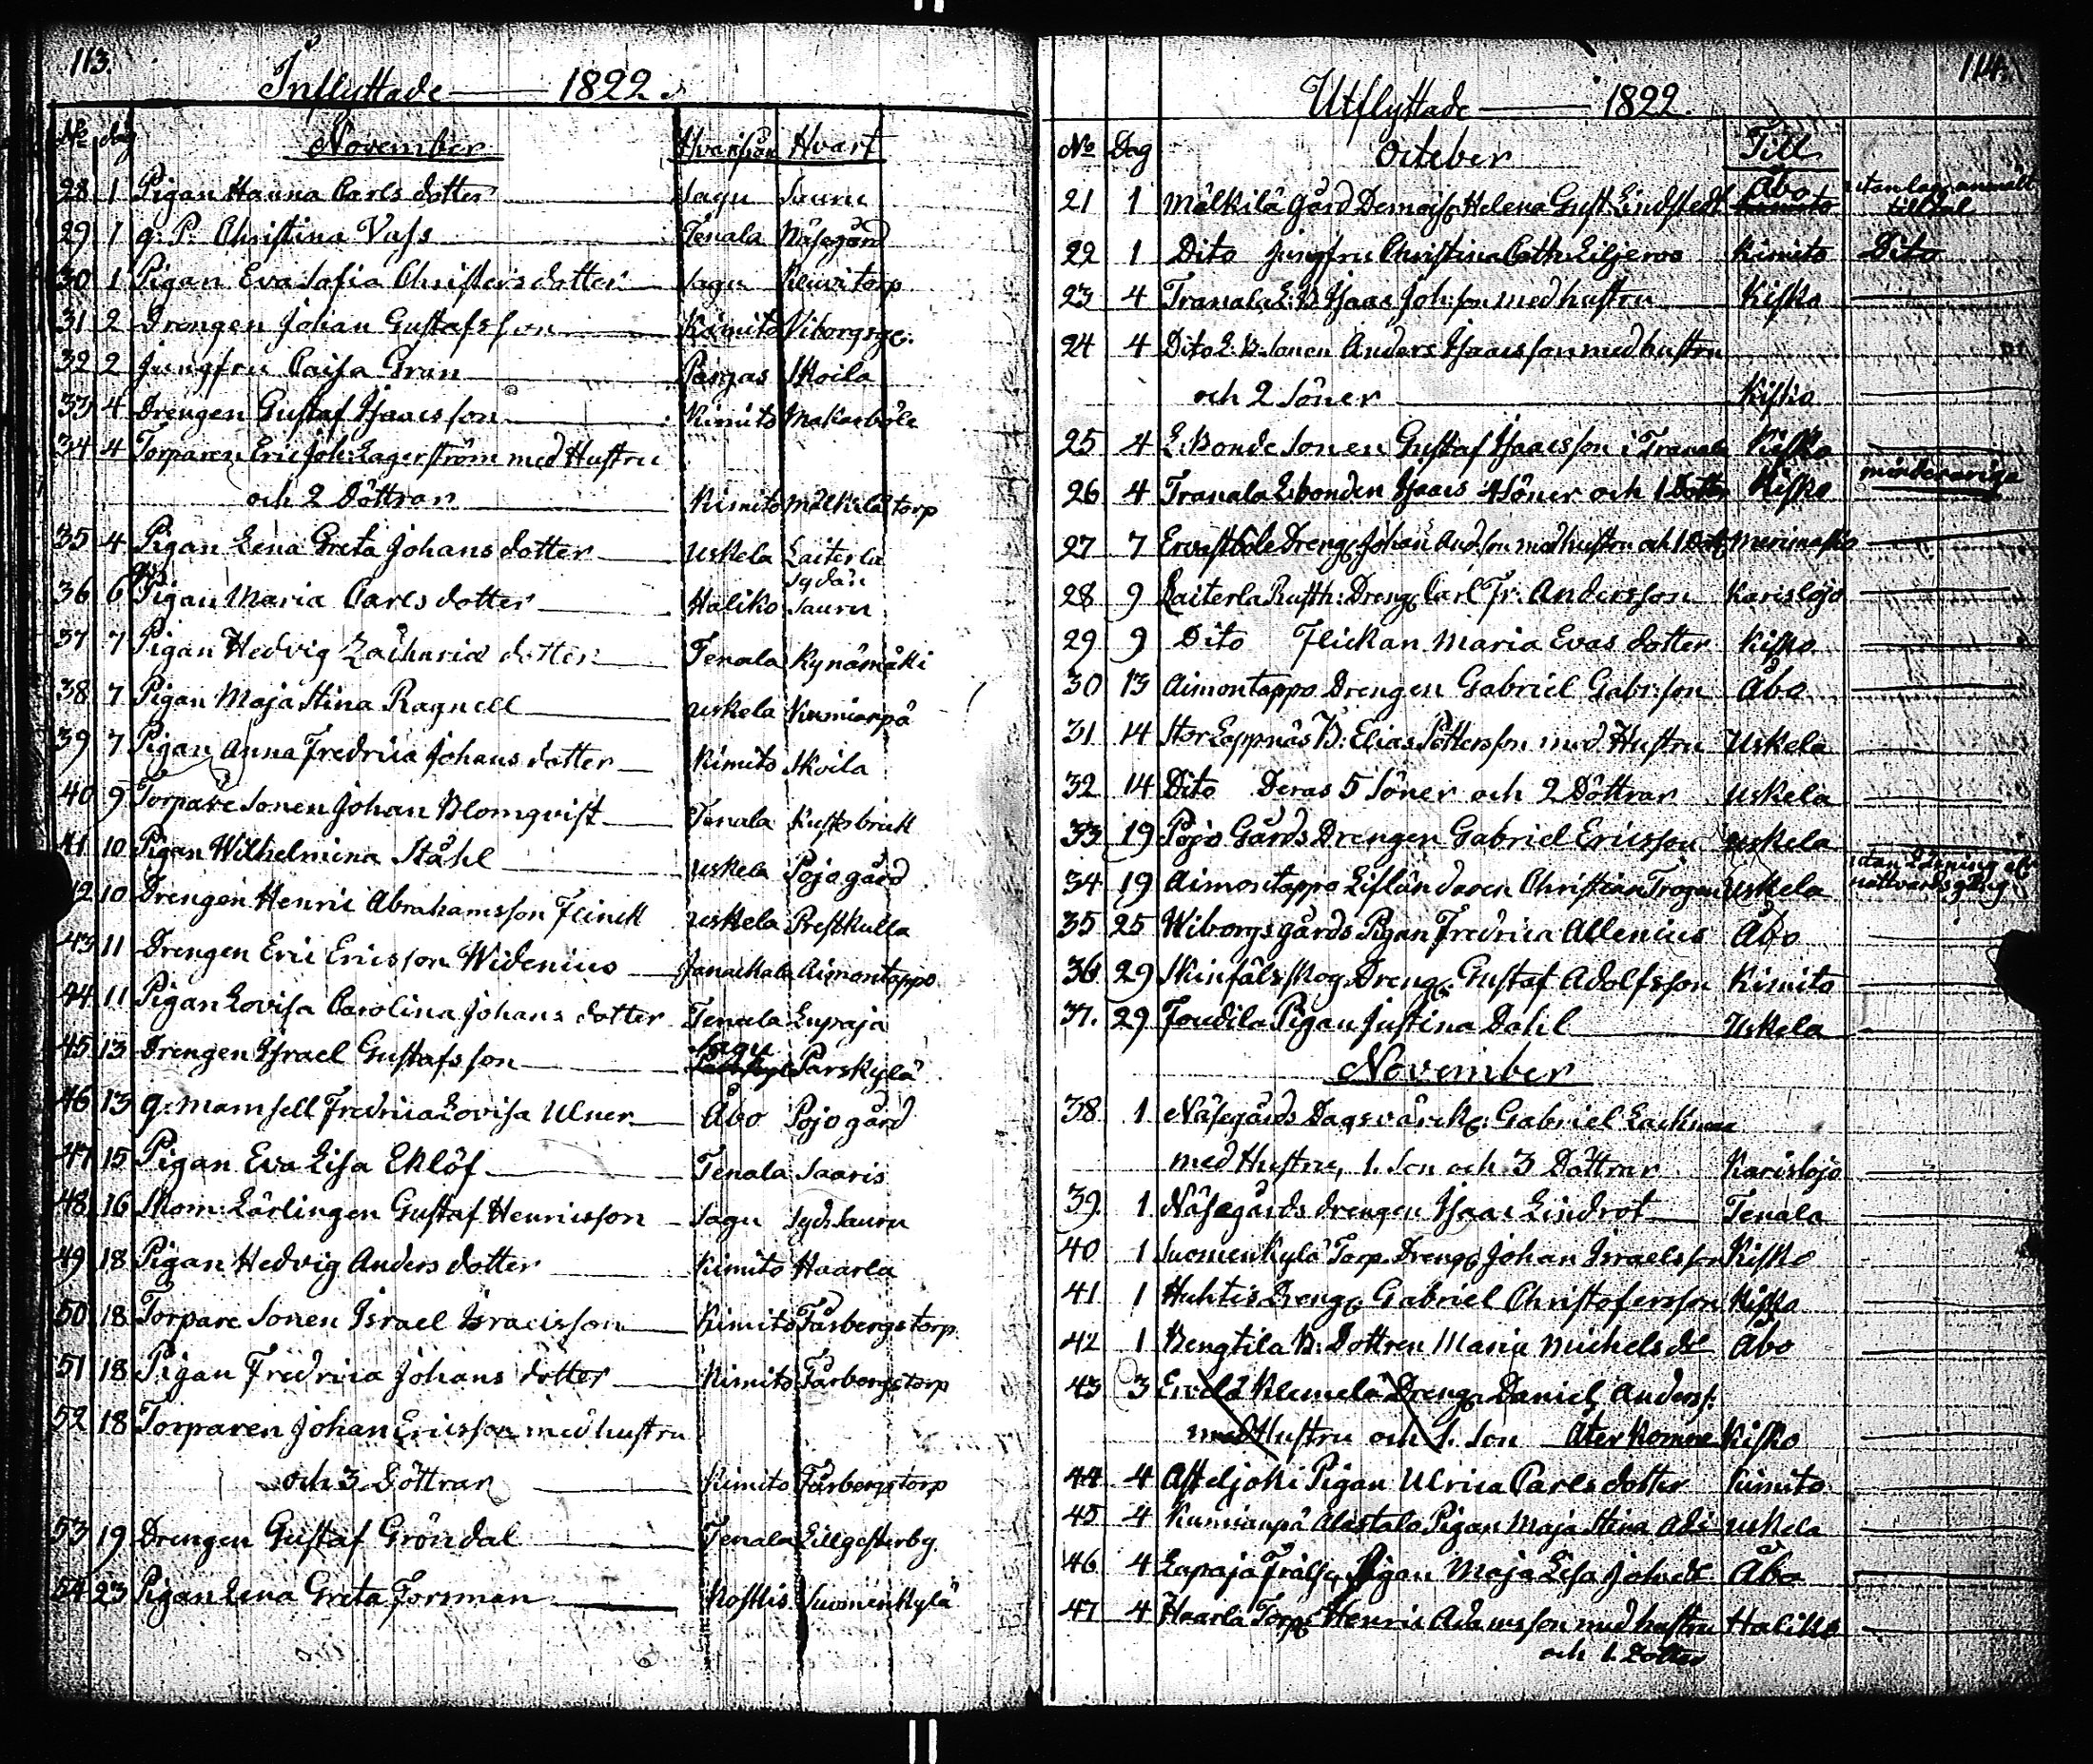 113.
Inflyttade 1822.
No dag November Hvarifrån Hvart
28 1 Pigan Hanna Carls dotter Sagu Sauru
29 1 g. P. Christina Vass Tenala Näsegård
30 1 Pigan Eva Sofia Christers dotter Sagu Klemitorp
31 2 Drengen Johan Gustafsson Kimito Viborgsg:
32 2 Jungfru Caisa Gran Pargas Skoila
33 4 Drengen Gustaf Isaacsson Kimito Makarböle
34 4 Torparen Eric Joh: Lagerström med Hustru
och 2 Döttrar Kimito Mälkilä torp
35 4 Pigan Lena Greta Johans dotter Uskela Laiterla
36 6 Pigan Maria Carls dotter Haliko Sydän Sauru
37 7 Pigan Hedvig Zacharias dotter Tenala Kynämäki
38 7 Pigan Maja Stina Ragnell Uskela Kumianpä
39 7 Pigan Anna Fredrica Johans dotter Kimito Skoila
40 9 Torpare Sonen Johan Blomqvist Tenala
41 10 Pigan Wilhelmina Ståhl Uskela Pojo gård
42 10 Drengen Henric Abrahamsson Flinck Uskela Prestkulla
43 11 Drengen Eric Ericsson Widenius Janackala Aimontappo
44 11 Pigan Lovisa Carolina Johans dotter Tenala Lupaja
45 13 Drengen Israel Gustafsson Sagu Parskylä
46 13 g: Mamsell Fredrica Lovisa Ulner Åbo Pojo gård
47 15 Pigan Eva Lisa Eklöf Tenala Saaris
48 16 Skom: Lärlingen Gustaf Henricsson Sagu Syd: Sauru
49 18 Pigan Hedvig Anders dotter Kimito Haarla
50 18 Torpare Sonen Israel Israelsson Kimito Fårbergstorp
51 18 Pigan Fredrica Johans dotter Kimito Fårbergstorp
52 18 Torparen Johan Ericsson med hustru
och 3 Döttrar Kimito Fårbergstorp
53 19 Drengen Gustaf Gröndal Tenala Lillgesterby
54 23 Pigan Lena Greta Forsman Koskis Suomenkylä
114.
Utflyttade 1822.
No Dag October Till
21 1 Mälkilä Gård Demois: Helena Gust: Lindstedt Åbo
22 1 Dito Jungfru Christina Cath: Liljeroo Kimito Dito
23 4 Tranala L: B: Isaac Joh:son med hustru Kisko
24 4 Dito L: B: Sonen Anders Isaacsson med hustru
och 2 Söner Kisko
25 4 L: Bonde Sonen Gustaf Isaacsson i Tranala Kisko
26 4 Tranala L: bonden Isaacs 4 Söner och 1 Dotter Kisko minderariga
27 7 Ervastböle Dreng: Johan And:son med hustru och 1 Dott: Merimasko
28 9 Laiterla Rusth: Dreng: Carl Fr: Andersson Karislojo
29 9 Dito Flickan Maria Evas dotter Kisko
30 13 Aimontappo Drengen Gabriel Gabr:son Åbo
31 14 Stor Lappnäs B: Elias Pettersson med Hustru Uskela
32 14 Dito Deras 5 Söner och 2 Döttrar Uskela
33 19 Pojo Gårds Drengen Gabriel Ericsson Uskela
34 19 Aimontappo Liflündaren Christian Trogen Uskela nattvards gång
35 25 Wiborgs gårds Pigan Fredrica Allenius Åbo
36 29 Skinfäls Skog Dreng: Gustaf Adolfsson Kimito
37. 29 Toudila Pigan Justina Dahl Uskela
November
38 1 Näsegårds Dagsvärck: Gabriel Lackman
med Hustru, 1. Son och 3 Döttrar Karislojo
39. 1 Näsegårds drengen Isaac Lindrot Tenala
40 1 Suomenkylä Torp. Dreng: Johan Israelsson Kisko
41 1 Huhtis Dreng: Gabriel Christofersson Kisko
42 1 Bengtila B: Dottren Maria Michels dr Åbo
43 3 Ervelä Klemelä Dreng: Daniel Anders s:
med Hustru och 1. Son Åter komne Kisko
44 4 Asteljoki Pigan Ulrica Carls dotter Kimito
45 4 Kumianpä Alastalo Pigan Maja Stina Ads: Uskela
46 4 Lapaja Frälse Pigan Maja Lisa Johsdr Åbo
47 4 Haarla Torp: Henric Adamsson med hustru Haliko
och 1. Dotter